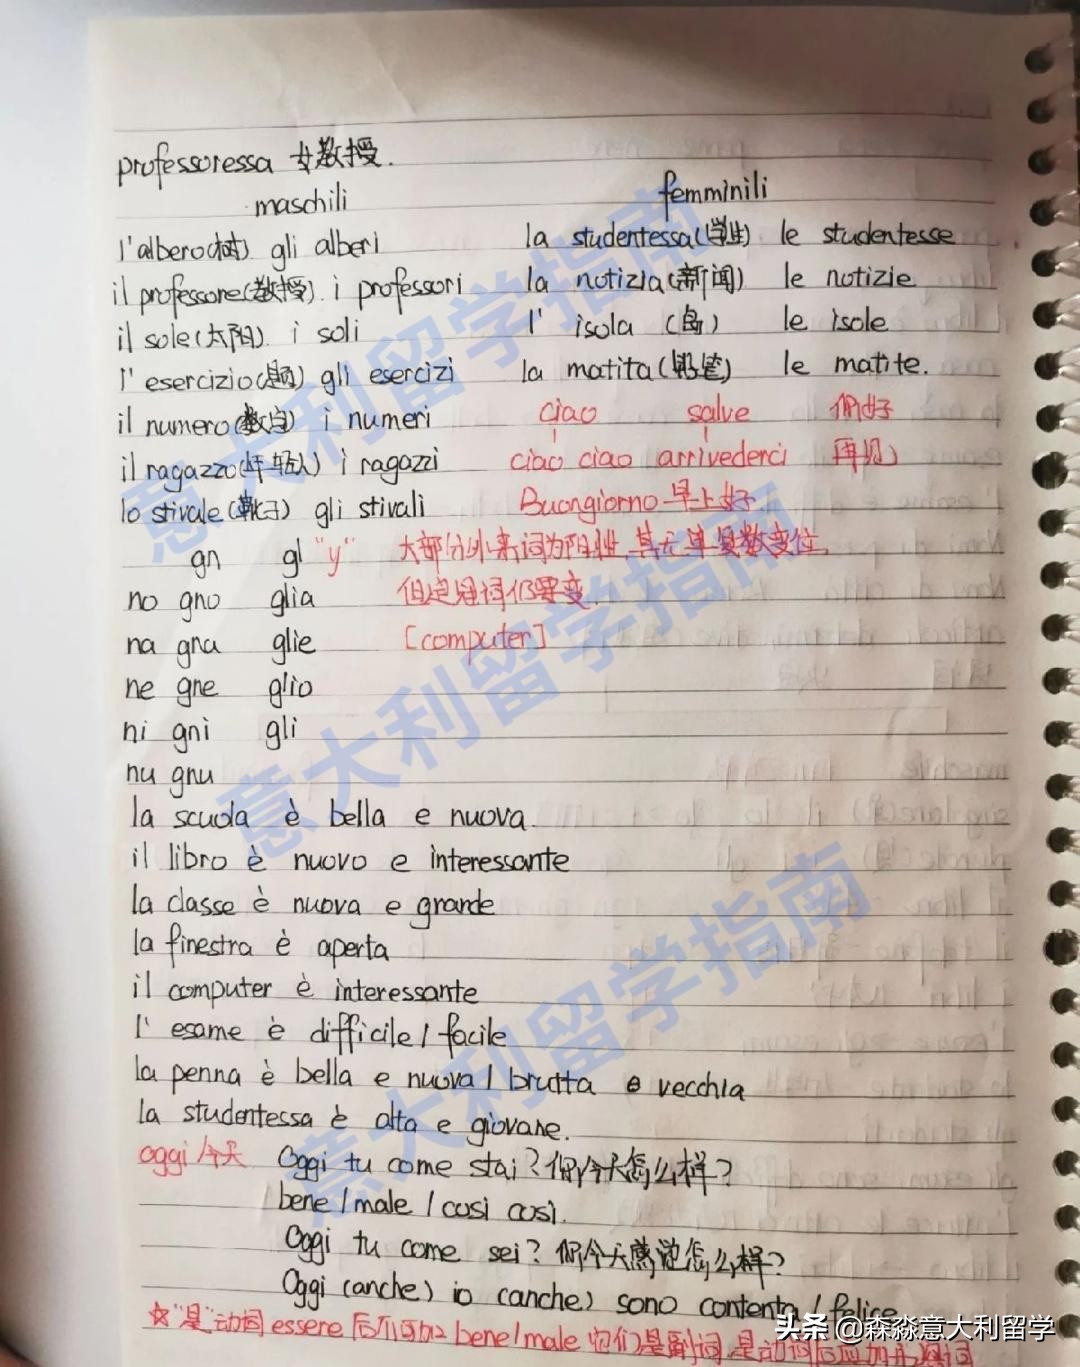 professoressa 女教授.
maschili femminili
l'albero(树) gli alberi la studentessa(学生) le studentesse
il professore(教授) i professori la notizia(新闻) le notizie
il sole(太阳) i soli l' isola (岛) le isole
l' esercizio(题) gli esercizi la matita(铅笔) le matite.
il numero(数字) i numeri ciao salve 你好
il ragazzo(年轻人) i ragazzi ciao ciao arrivederci 再见
lo stivale(靴子) gli stivali Buongiorno 早上好
gn gl "y" 大部分外来词为阳性,其无单复数变位,
no gno glia 但定冠词仍要变.
na gna glie [computer]
ne gne glio
ni gni gli
nu gnu
la scuola è bella e nuova.
il libro è nuovo e interessante
la classe è nuova e grande
la finestra è aperta
il computer è interessante
l' esame è difficile / facile
la penna è bella e nuova / brutta e vecchia
la studentessa è alta e giovane.
oggi/今天 Oggi tu come stai?你今天怎么样?
bene / male / così così.
Oggi tu come sei?你今天感觉怎么样?
Oggi (anche) io (anche) sono contenta / felice
☆"是"动词 essere 后不可加 bene/male 它们是副词,是动词后应加形容词
意大利留学指南
意大利留学指南
意大利留学指南
头条 @森淼意大利留学